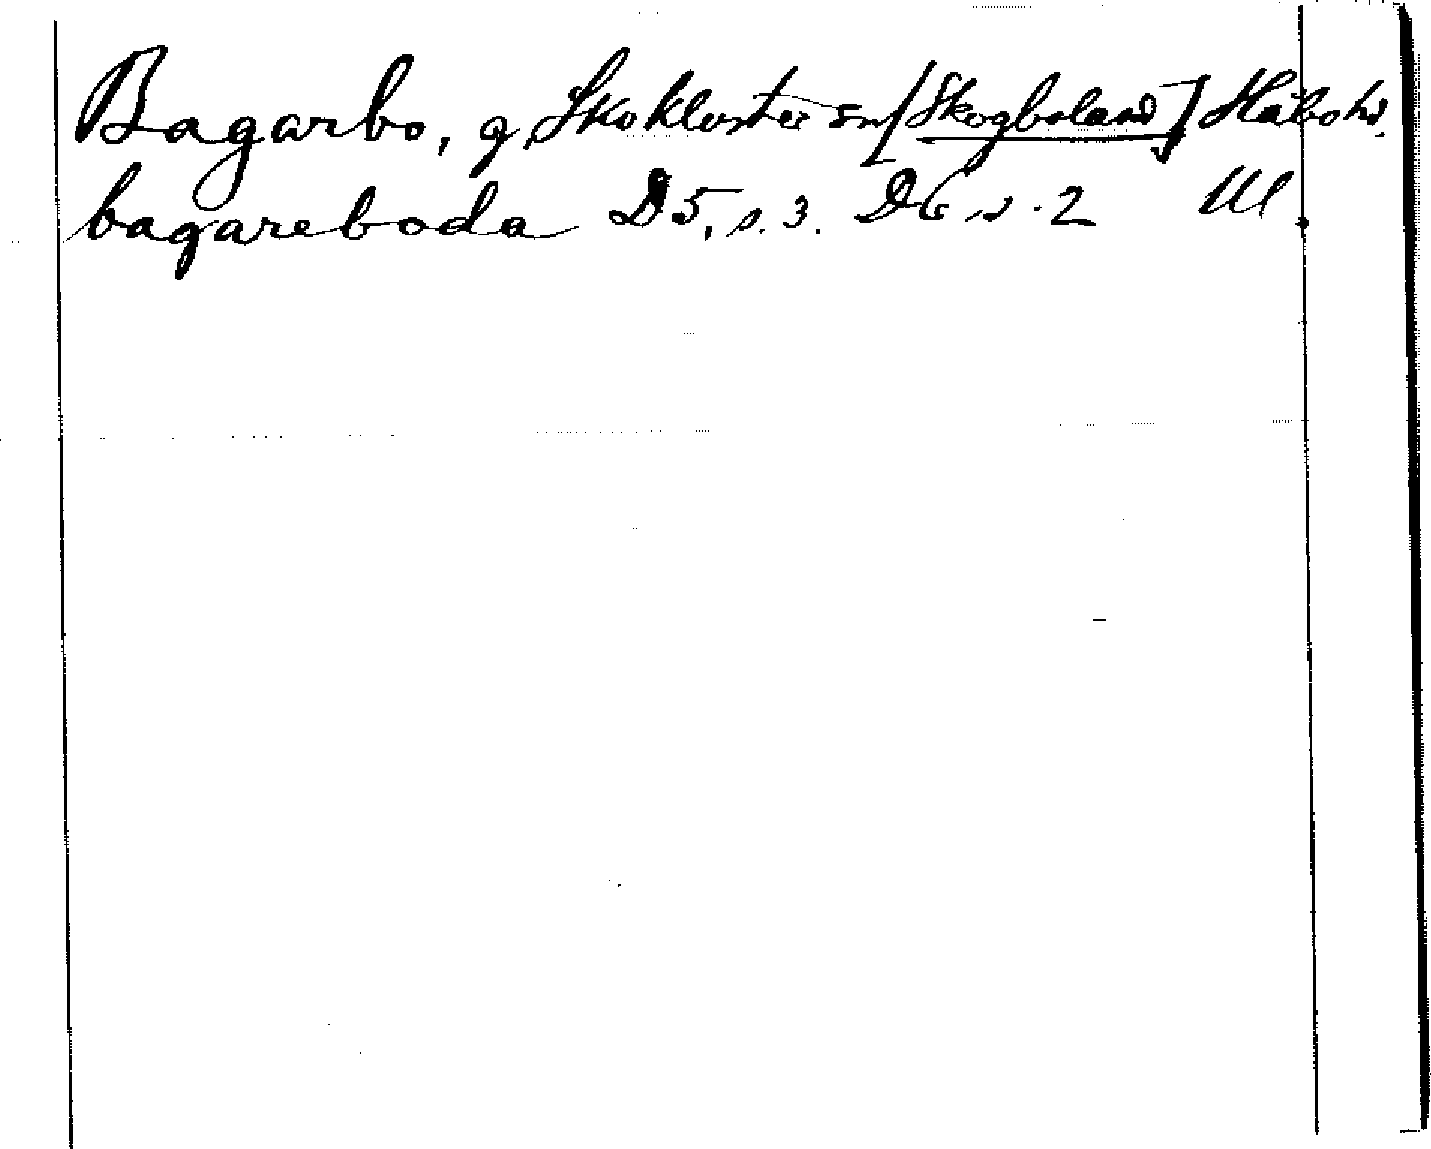 Bagarbo, g, Skokloster sn [Skogboland] Håbo hd.
bagareboda D5, s. 3. D6, s. 2 Ul.